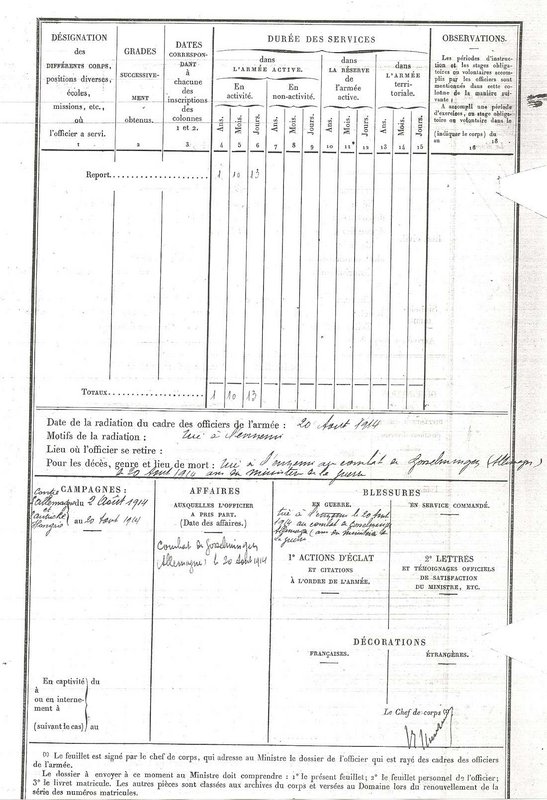 DÉSIGNATION
des
DIFFÉRENTS CORPS,
positions diverses,
écoles,
missions, etc.,
où
l'officier a servi.
1
GRADES
SUCCESSIVE-
MENT
obtenus.
2
DATES
CORRESPON-
DANT
à
chacune
des
inscriptions
des
colonnes
1 et 2.
3
DURÉE DES SERVICES
dans
L'ARMÉE ACTIVE.
En
activité.
En
non-activité.
dans
LA RÉSERVE
de
l'armée
active.
dans
L'ARMÉE
terri-
toriale.
Ans. Mois. Jours. Ans. Mois. Jours. Ans. Mois. Jours. Ans. Mois. Jours.
4 5 6 7 8 9 10 11 12 13 14 15
OBSERVATIONS.
Les périodes d'instruc-
tion et les stages obliga-
toires ou volontaires accom-
plis par les officiers sont
mentionnés dans cette co-
lonne de la manière sui-
vante :
A accompli une période
d'exercices, un stage obliga-
toire ou volontaire dans le
(indiquer le corps) du
au 18 .
16
Report. 1 10 13
TOTAUX. 1 10 13
Date de la radiation du cadre des officiers de l'armée : 20 Aout 1914
Motifs de la radiation : tué à l'ennemi
Lieu où l'officier se retire :
Pour les décès, genre et lieu de mort : tué à l'ennemi au combat de (Allemagne)
le 20 Aout 1914 du ministre de la guerre
CAMPAGNES :
Contre
l'Allemagne
et
l'Autriche
Hongrie
du 2 Août 1914
au 20 Aout 1914
AFFAIRES
AUXQUELLES L'OFFICIER
A PRIS PART.
(Date des affaires.)
Combat de
(Allemagne) le 20 Août 1914
BLESSURES
EN GUERRE.
tué à l'ennemi le 20 Aout
1914 au combat de
Allemagne ( du ministre de
la guerre
EN SERVICE COMMANDÉ.
1° ACTIONS D'ÉCLAT
ET CITATIONS
À L'ORDRE DE L'ARMÉE.
2° LETTRES
ET TÉMOIGNAGES OFFICIELS
DE SATISFACTION
DU MINISTRE, ETC.
DÉCORATIONS
FRANÇAISES.
ÉTRANGÈRES.
En captivité du
à
ou en interne-
ment à
(suivant le cas) au
Le Chef de corps (1),
(1) Le feuillet est signé par le chef de corps, qui adresse au Ministre le dossier de l'officier qui est rayé des cadres des officiers
de l'armée.
Le dossier à envoyer à ce moment au Ministre doit comprendre : 1° le présent feuillet; 2° le feuillet personnel de l'officier;
3° le livret matricule. Les autres pièces sont classées aux archives du corps et versées au Domaine lors du renouvellement de la
série des numéros matricules.